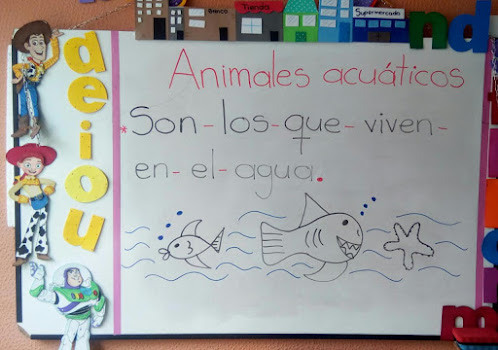 Banco
Tienda
Supermercado
n d
Animales acuáticos
* Son-los-que-viven-
en-el-agua.
a
e
i
o
u
m